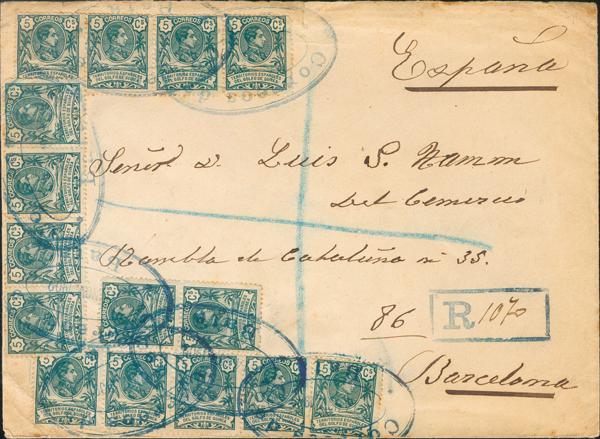 CORREOS
5 Cs
TERRITORIOS ESPAÑOLES
DEL GOLFO DE GUINEA
España
Señor D. Luis S. Namm
Del Comercio
Rambla de Cataluña n 35.
86
R 1070
Barcelona